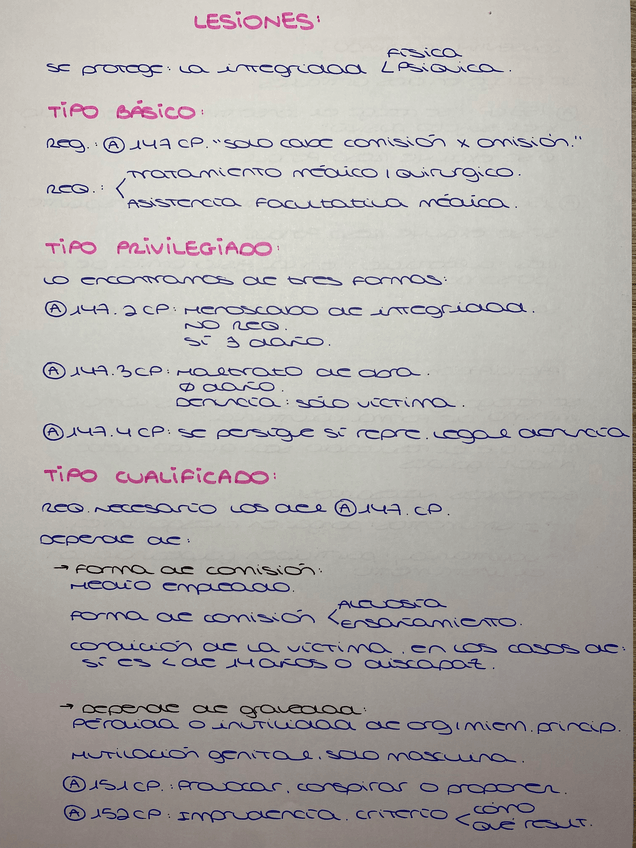 LESIONES:
se protege: la integridad < Física
Psíquica.
TIPO BÁSICO:
Reg.: Ⓐ 147 CP. "solo cabe comisión x omisión."
REQ.: < Tratamiento médico/quirurgico.
Asistencia facultativa médica.
TIPO PRIVILEGIADO:
lo encontramos de tres formas:
Ⓐ 147.2 CP: Menoscabo de integridad.
NO REQ.
SÍ ∃ daño.
Ⓐ 147.3 CP: Maltrato de obra.
∅ daño.
Denuncia: sólo víctima.
Ⓐ 147.4 CP: se persigue si repre. legal denuncia
TIPO CUALIFICADO:
REQ. necesario los del Ⓐ 147. CP.
Depende de:
→ Forma de comisión:
Medio empleado.
Forma de comisión < Alevosía
Ensañamiento.
condición de la víctima, en los casos de:
si es < de 14 años o discapaz.
→ Depende de gravedad:
Pérdida o inutilidad de org/miem. princip.
Mutilación genital, solo masculina.
Ⓐ 151 CP.: Provocar, conspirar o proponer.
Ⓐ 152 CP: Imprudencia. criterio < cómo
qué result.